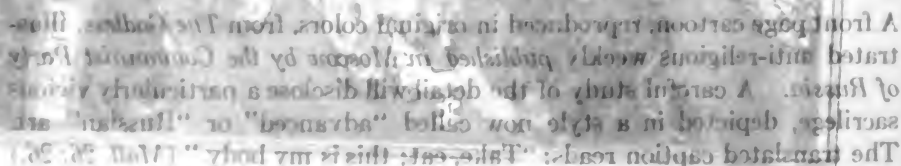 A front page cartoon, reproduced in original colors, from The Godless, illus-
trated anti-religious weekly published in Moscow by the Communist Party
of Russia. A careful study of the detail will disclose a particularly vicious
sacrilege, depicted in a style now called "advanced" or "Russian" art.
The translated caption reads: "Take, eat; this is my body" (Matt. 26: 26.)